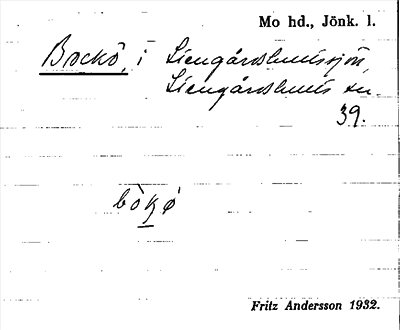 Mo hd., Jönk. l.
Bockö, i Stengårdshultssjön,
Stengårdshults sn.
39.
bòkø
Fritz Andersson 1932.